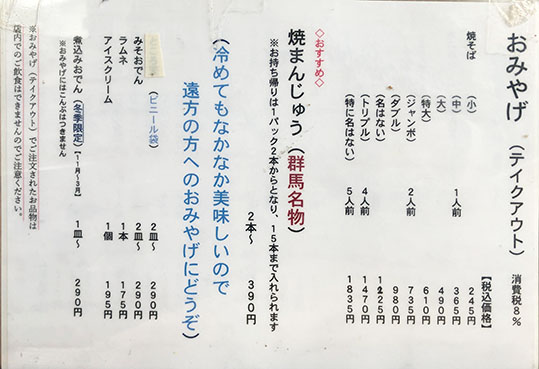 おみやげ (テイクアウト) 消費税8%
【税込価格】
焼そば (小) 245円
(中) 1人前 365円
(大) 490円
(特大) 610円
(ジャンボ) 2人前 735円
(ダブル) 980円
(名はない) 1225円
(トリプル) 4人前 1470円
(特に名はない) 5人前 1835円
◇おすすめ◇
焼まんじゅう (群馬名物) 2本〜 390円
※お持ち帰りは1パック2本からとなり、15本まで入れられます
(冷めてもなかなか美味しいので
遠方の方へのおみやげにどうぞ)
(ビニール袋) 2皿〜 290円
みそおでん 2皿〜 290円
ラムネ 1本 175円
アイスクリーム 1個 195円
煮込みおでん (冬季限定) 【11月〜3月】 1皿〜 290円
※おみやげにはこんぶはつきません
※おみやげ (テイクアウト) でご注文されたお品物は
店内でのご飲食はできませんのでご注意ください。